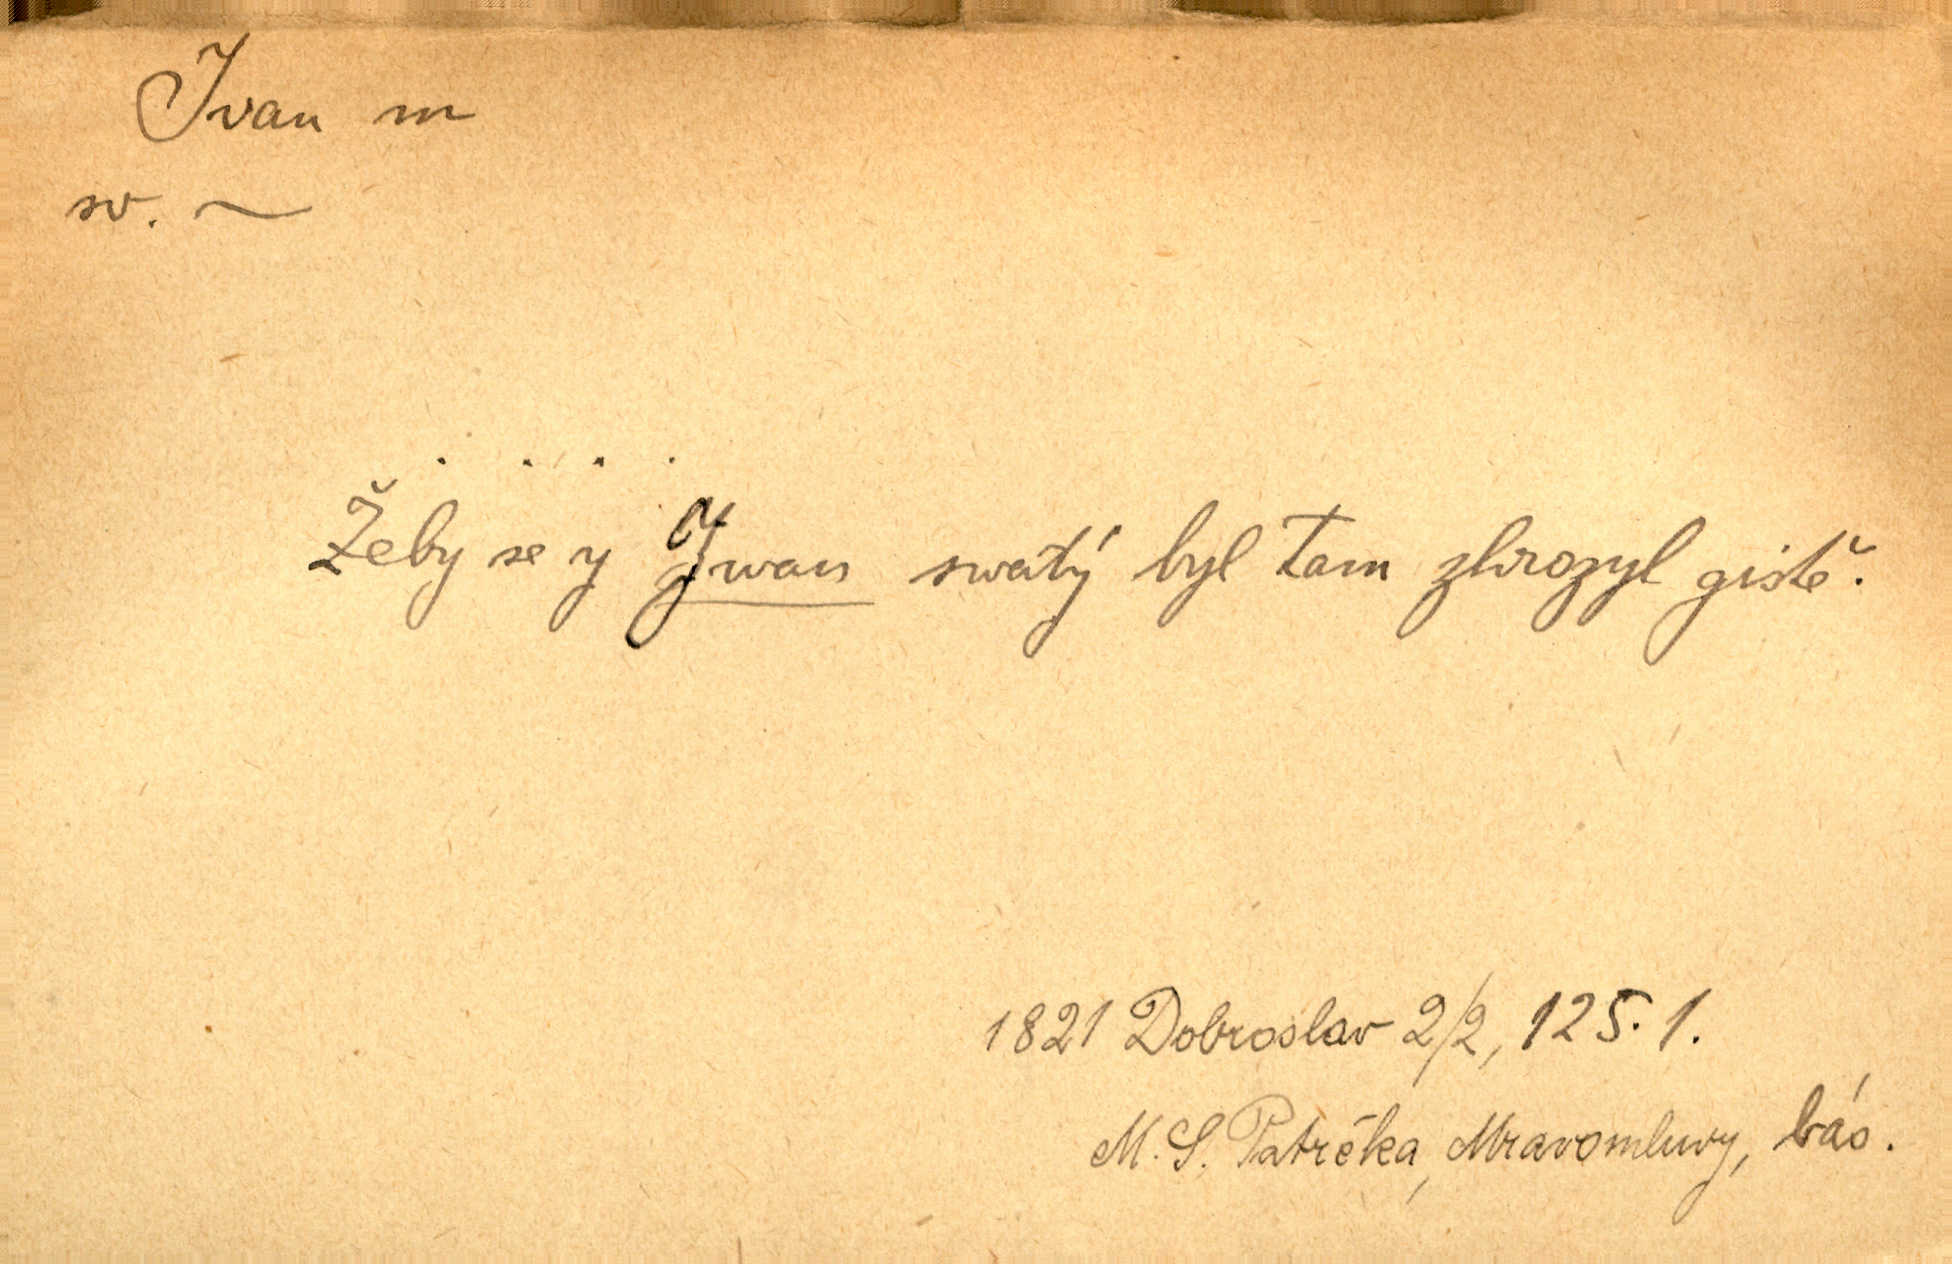 Ivan m
sv. ~
. . . .
Žeby se y Jwan swatý byl tam zhrozyl gistě.
1821 Dobroslav 2/2, 125. 1.
M. S. Patrčka, Mravomluvy, bás.